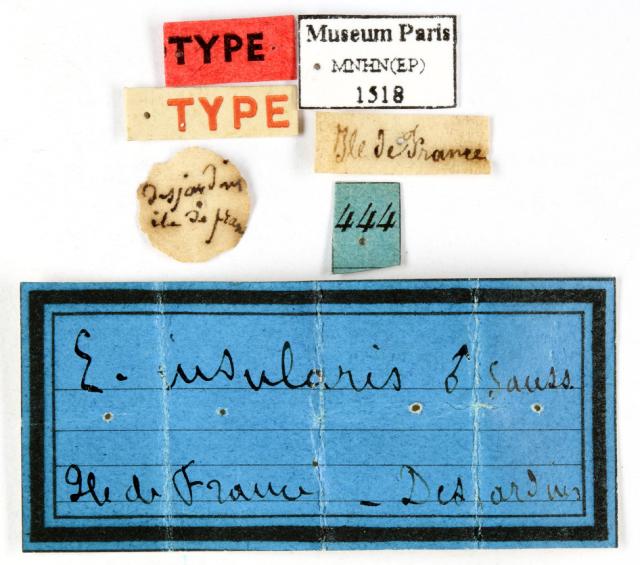 TYPE
Museum Paris
MNHN(EP)
1518
TYPE
Ile de France
desjardins
ile de fran
444
E. insularis ♂ Sauss
Ile de France _ Desjardins